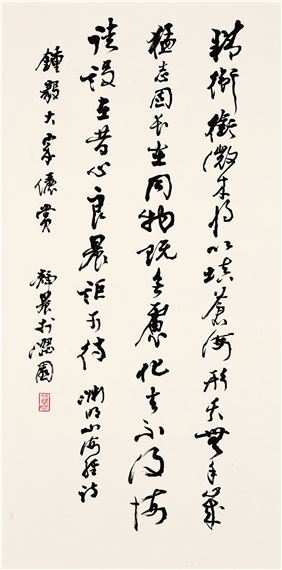 精衛銜微木將以填蒼海形夭無千歲
猛志固常在同物既無慮化去不復悔
徒設在昔心良晨詎可待 淵明山海經詩
鍾毅大家儷賞 靜農於園